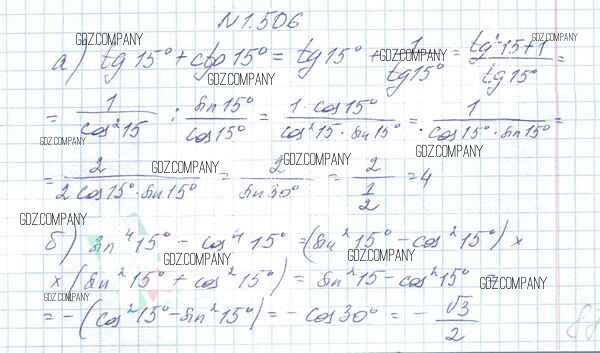 N 1.506
а) tg 15° + ctg 15° = tg 15° + 1/tg 15° = (tg² 15 + 1)/tg 15° =
= 1/cos² 15 : sin 15°/cos 15° = 1 · cos 15°/(cos² 15 · sin 15°) = 1/(cos 15° · sin 15°) =
= 2/(2 cos 15° · sin 15°) = 2/sin 30° = 2/(1/2) = 4
б) sin⁴ 15° - cos⁴ 15° = (sin² 15° - cos² 15°) ×
× (sin² 15° + cos² 15°) = sin² 15 - cos² 15° =
= -(cos² 15° - sin² 15°) = - cos 30° = - √3/2
GDZ.COMPANY
GDZ.COMPANY
GDZ.COMPANY
GDZ.COMPANY
GDZ.COMPANY
GDZ.COMPANY
GDZ.COMPANY
GDZ.COMPANY
GDZ.COMPANY
GDZ.COMPANY
GDZ.COMPANY
GDZ.COMPANY
GDZ.COMPANY